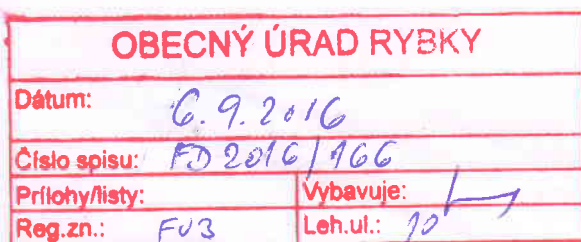 OBECNÝ ÚRAD RYBKY
Dátum: 6.9.2016
Číslo spisu: FD 2016/166
Prílohy/listy: Vybavuje:
Reg.zn.: FU3 Leh.ul.: 10